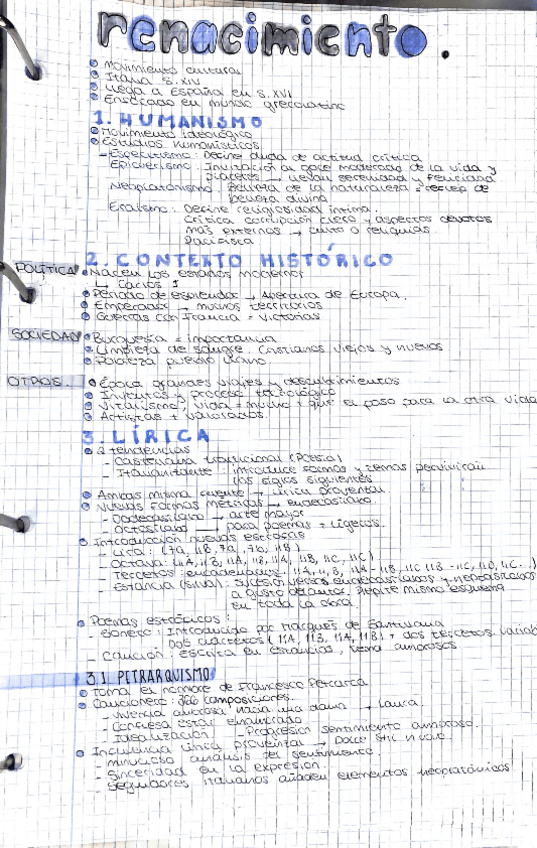 renacimiento.
Movimiento cultural
Italia S. XIV
Llega a España en S. XVI
Enfocado en mundo grecolatino
1. HUMANISMO
Movimiento ideológico
Estudios humanísticos
- Escepticismo: Define duda de actitud crítica
Epicureísmo: Invitación al goce moderado de la vida y
placeres → llevan serenidad y felicidad
Neoplatonismo: Belleza de la naturaleza = reflejo de
belleza divina
Erasmismo: Define religiosidad íntima.
Crítica corrupción clero y aspectos devotos
más externos → culto a reliquias
Pacifista
2. CONTEXTO HISTÓRICO
POLÍTICA
Nacen los estados modernos
↳ Carlos I
Período de esplendor → Apertura de Europa.
Emperador → nuevos territorios
Guerras con Francia = victorias
SOCIEDAD
Burguesía = importancia
Limpieza de sangre. Cristianos viejos y nuevos
Nobleza pueblo llano
OTROS.
Época grandes viajes y descubrimientos
Inventos y proceso tecnológico
Vitalismo, vida = mucho + que el paso para la otra vida
Artistas + valorados.
3. LÍRICA
2 tendencias
- Castellana tradicional (Poesía)
- Italianizante: introduce formas y temas pervivirán
los siglos siguientes
Ambas misma fuente → lírica provenzal.
Nuevas formas métricas → endecasílabo
- Dodecasílabo → arte mayor
- Octosílabo → para poemas + ligeros.
Introducción nuevas estrofas
- Lira: (7a, 11B, 7a, 7b, 11B)
- Octava: (11A, 11B, 11A, 11B, 11A, 11B, 11C, 11C)
- Tercetos encadenados: 11A, 11B, 11A - 11B, 11C, 11B - 11C, 11D, 11C...)
- Estancia (silva): Sucesión versos endecasílabos y heptasílabos
a gusto del autor. Repite mismo esquema
en toda la obra.
Poemas estróficos:
- Soneto: Introducido por Marqués de Santillana
Dos cuartetos (11A, 11B, 11A, 11B) + dos tercetos. variable
- Canción: escrita en estancias, tema amoroso.
3.1 PETRARQUISMO
Toma el nombre de Francesco Petrarca
Cancionero: 366 composiciones.
- Vivencia amorosa hacia una dama → Laura.
- Confiesa estar enamorado
- Idealización - Progresión sentimiento amoroso.
Influencia lírica provenzal → Dolce Stil Nuovo.
- Minucioso análisis del sentimiento
- Sinceridad en la expresión.
- Seguidores italianos añaden elementos neoplatónicos